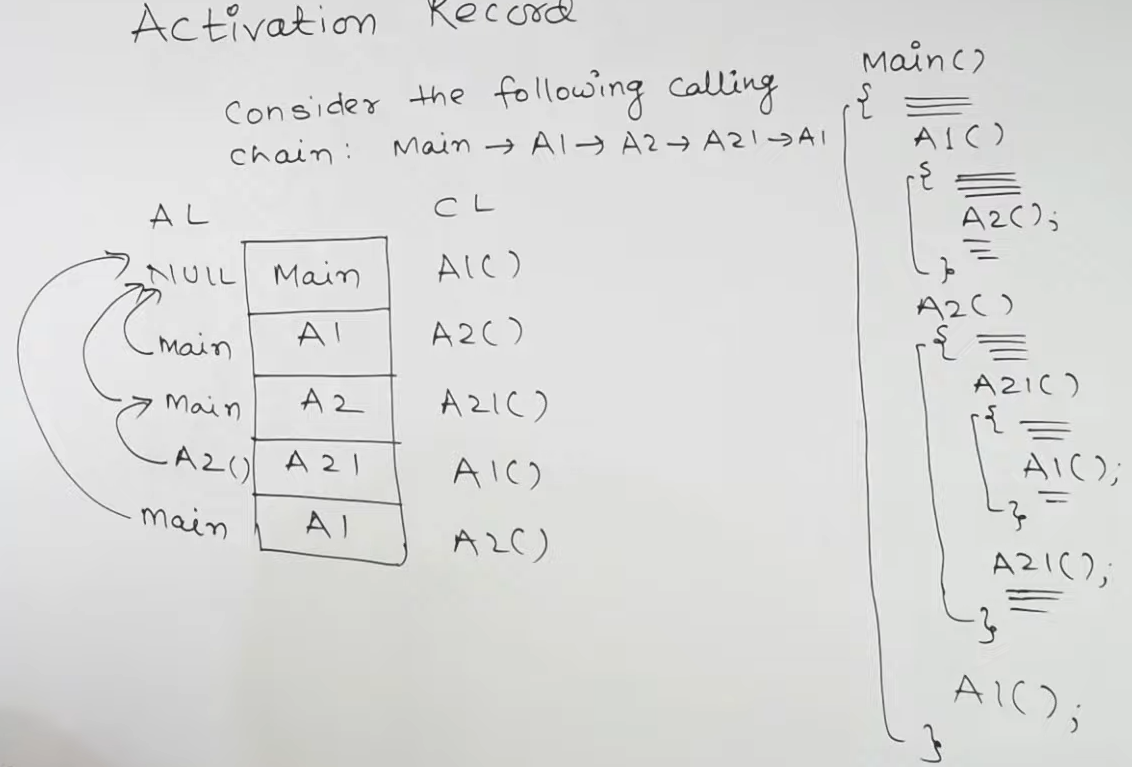 Activation Record
Consider the following calling
chain: Main → A1 → A2 → A21 → A1
AL CL
NULL Main A1()
Main A1 A2()
Main A2 A21()
A2() A21 A1()
Main A1 A2()
Main()
{
A1()
{
A2();
}
A2()
{
A21()
{
A1();
}
A21();
}
A1();
}